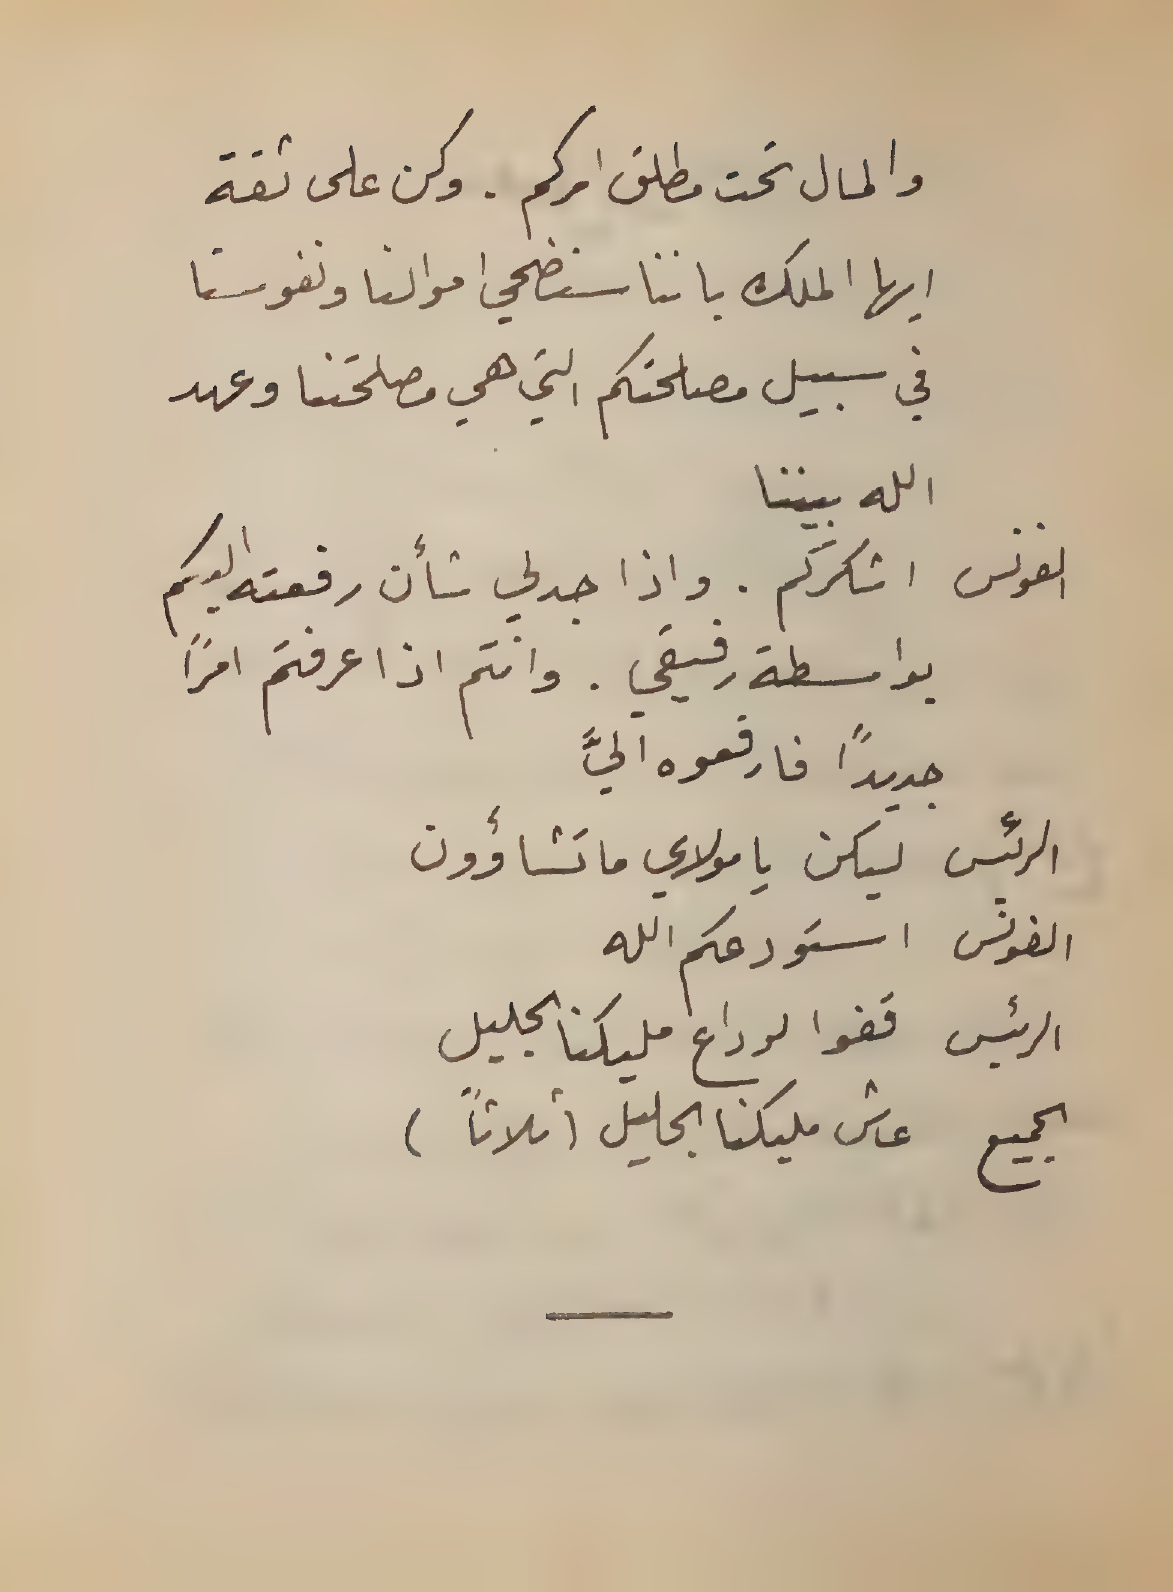 والمال تحت مطلق امركم . وكن على ثقة
ايها الملك باننا سنضحي اموالنا ونفوسنا
في سبيل مصلحتكم التي هي مصلحتنا وعهد
الله بيننا
الفونس اشكركم . واذا جدلي شأن رفعته اليكم
بواسطة رفيقي . وانتم اذا عرفتم امرًا
جديدًا فارفعوه اليَّ
الرئيس ليكن يا مولاي ما تشاؤون
الفونس استودعكم الله
الرئيس قفوا لوداع مليكنا الجليل
الجميع عاش مليكنا الجليل (ثلاثاً)